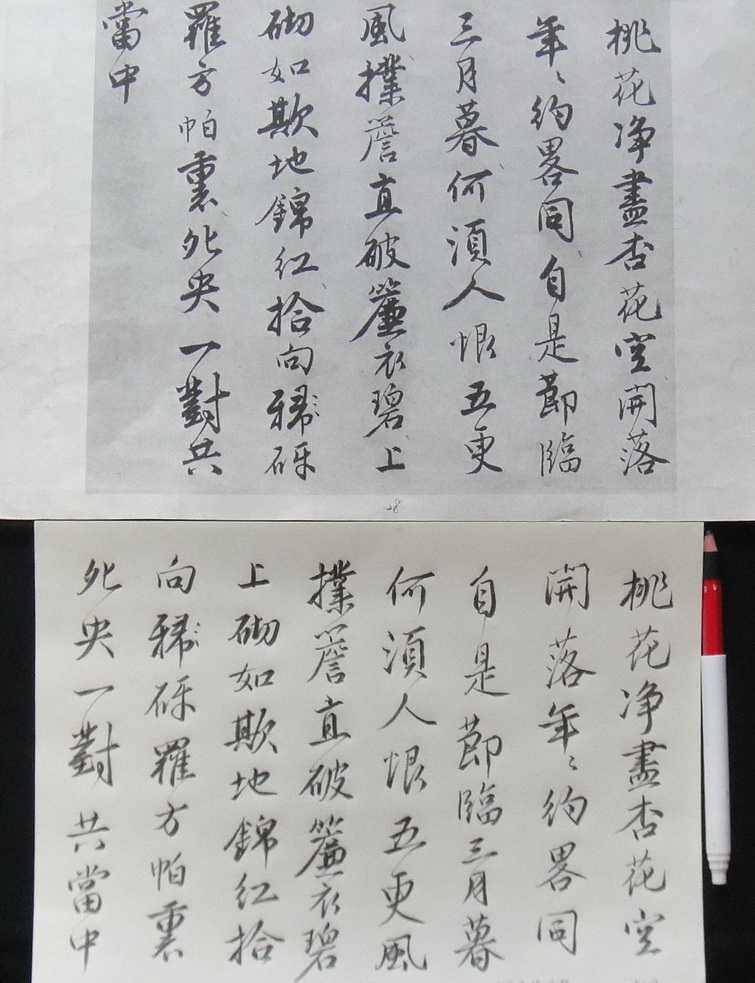 桃花净盡杏花空開落
年〻約畧同自是節臨
三月暮何須人恨五更
風撲簷直破簾衣碧上
砌如欺地錦紅拾向
羅方帕裹央一對共
當中
28
桃花净盡杏花空
開落年〻約畧同
自是節臨三月暮
何須人恨五更風
撲簷直破簾衣碧
上砌如欺地錦紅拾
向羅方帕裹
央一對共當中